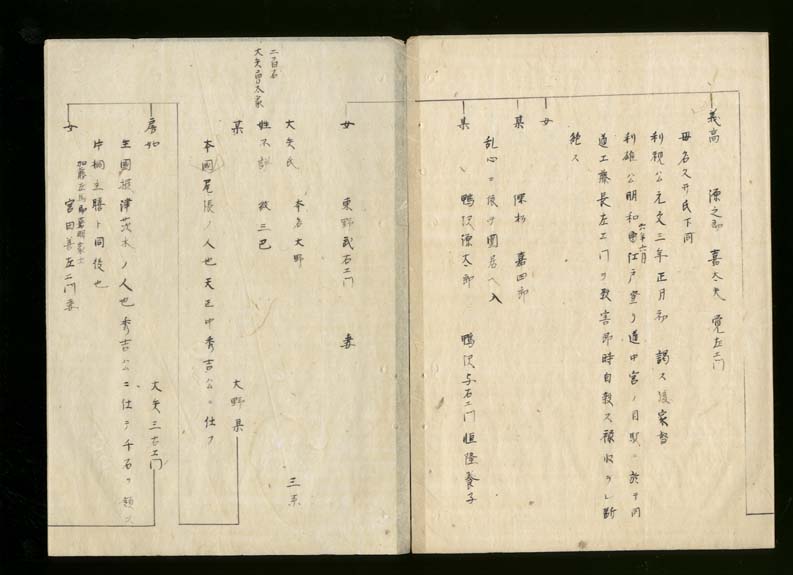 義高 源之助 喜太夫 覚左エ門
母名久井氏下同
利視公元文三年正月初謁ス後家督
利雄公明和 江戸登リ道中宮ノ目駅ニ於テ同
六年六月
道工藤長左エ門ヲ殺害即時自殺ス禄収ラレ断
絶ス
女
某 嘉四郎
乱心ニ依テ囲居ヘ入
某 鴨沢源太郎 鴨沢与右エ門恒隆養子
女 東野武右エ門 妻
二百石
大矢勇太家
大矢氏 本名大野 三系
姓不詳 紋三巴
某 大野某
本国尾張ノ人也天正中秀吉公ニ仕フ
房如 大矢三右エ門
生国摂津茨木ノ人也秀吉公ニ仕テ千石ヲ領ス
片桐主膳ト同役也
加藤左馬助嘉明家士
女 宮田善左エ門妻